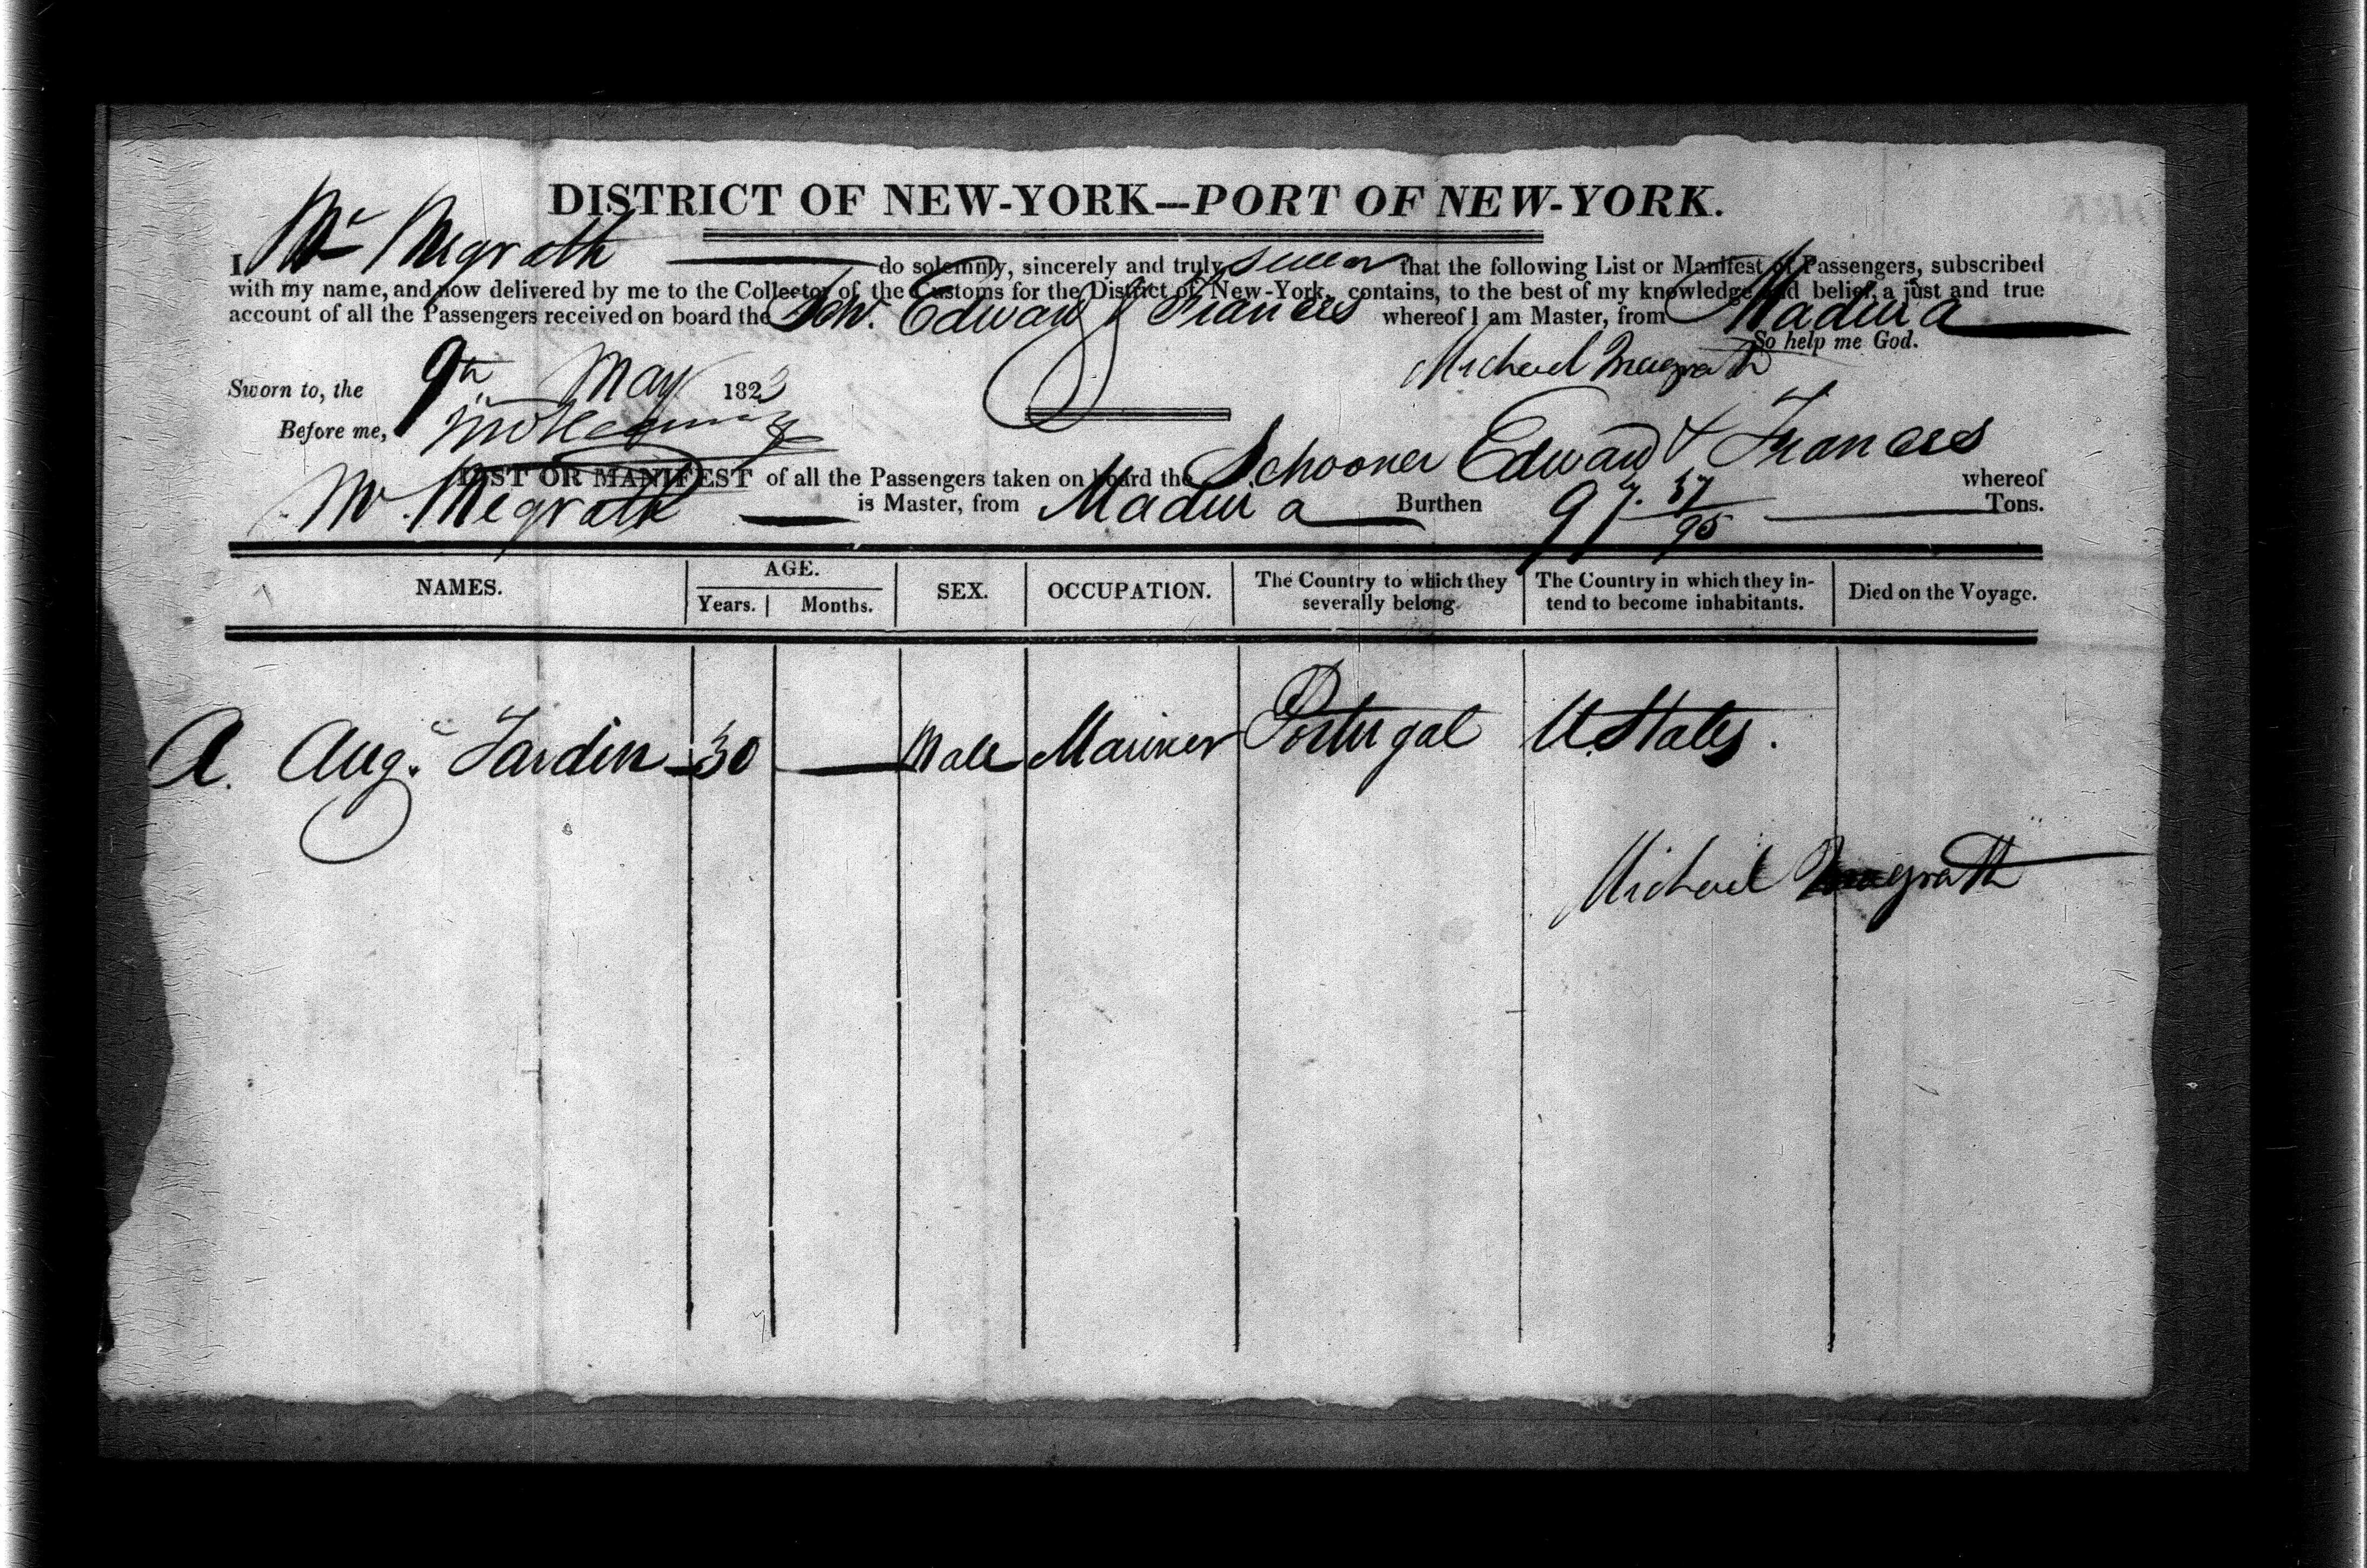 DISTRICT OF NEW-YORK—PORT OF NEW-YORK.
I Mr Megrath do solemnly, sincerely and truly swear that the following List or Manifest of Passengers, subscribed
with my name, and now delivered by me to the Collector of the Customs for the District of New-York, contains, to the best of my knowledge and belief, a just and true
account of all the Passengers received on board the Schr. Edward & Frances whereof I am Master, from Madeira
So help me God.
Michael Magrath
Sworn to, the 9th May 1823
Before me,
LIST OR MANIFEST of all the Passengers taken on board the Schooner Edward & Frances whereof
M. Megrath is Master, from Madeira Burthen 97. 57/95 Tons.
NAMES. AGE. Years. Months. SEX. OCCUPATION. The Country to which they severally belong. The Country in which they intend to become inhabitants. Died on the Voyage.
A. Augt. Jardin 30 Male Mariner Portugal U. States.
Michael Magrath